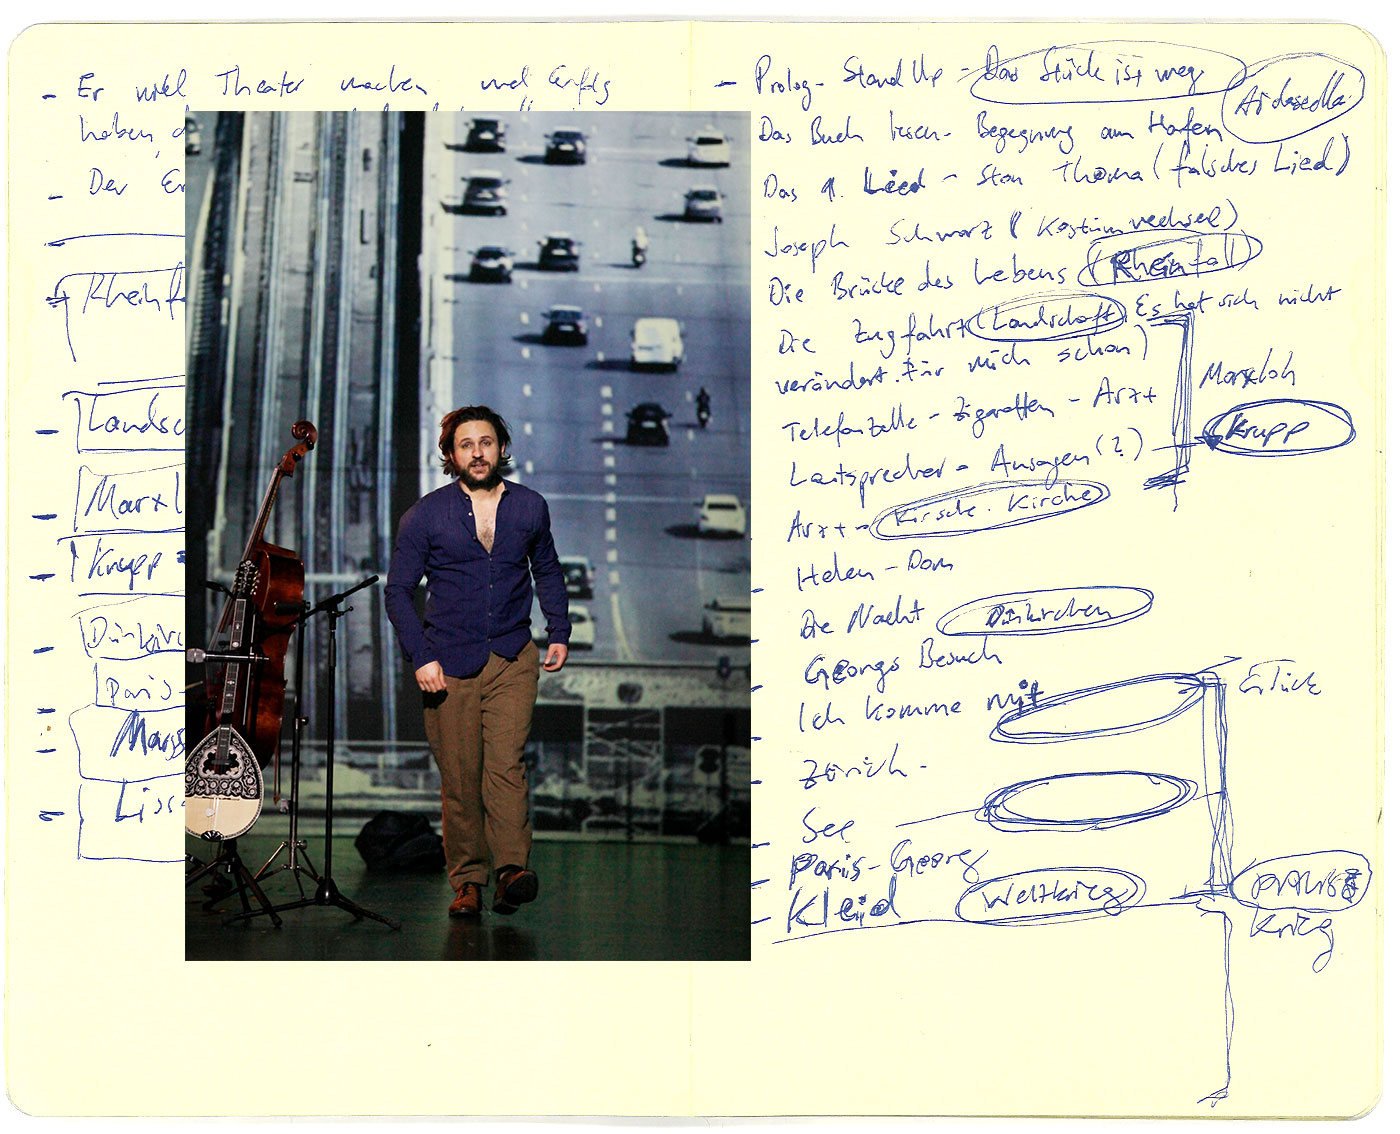 - Er will Theater machen und Erfolg
haben, d
- Der Er
- Rheinfa
- Landsc
- Marxl
- Krupp =
- Dünkirc
- Paris-
- Liss
- Prolog - Stand Up - Das Stück ist weg
Das Buch lesen - Begegnung am Hafen
Das 1. Lied - Ston Thoma (falsches Lied)
Joseph Schwarz (Kostümwechsel)
Die Brücke des Lebens (Rheinfall)
Die Zugfahrt (Landschaft. Es hat sich nicht
verändert. Für mich schon)
Marxloh
Telefonzelle - Zigaretten - Arzt
Krupp
Lautsprecher - Ansagen (?)
Arzt - Kirsche. Kirche
Helen - Dom
Die Nacht Dünkirchen
Georgs Besuch
Ich komme mit
Zürich -
See
Paris - Georg
Kleid Weltkrieg
Krieg